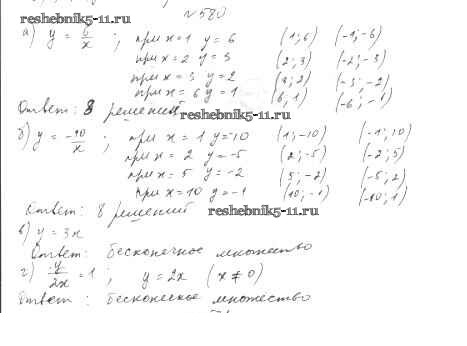 № 580
reshebnik5-11.ru
а) y = 6/x ; при x = 1 y = 6 (1; 6) (-1; -6)
при x = 2 y = 3 (2; 3) (-2; -3)
при x = 3 y = 2 (3; 2) (-3; -2)
при x = 6 y = 1 (6; 1) (-6; -1)
Ответ: 8 решений
reshebnik5-11.ru
б) y = -10/x ; при x = 1 y = 10 (1; -10) (-1; 10)
при x = 2 y = -5 (2; -5) (-2; 5)
при x = 5 y = -2 (5; -2) (-5; 2)
при x = 10 y = -1 (10; -1) (-10; 1)
Ответ: 8 решений
reshebnik5-11.ru
в) y = 3x
Ответ: бесконечное множество
г) y/2x = 1 ; y = 2x (x ≠ 0)
Ответ: бесконечное множество